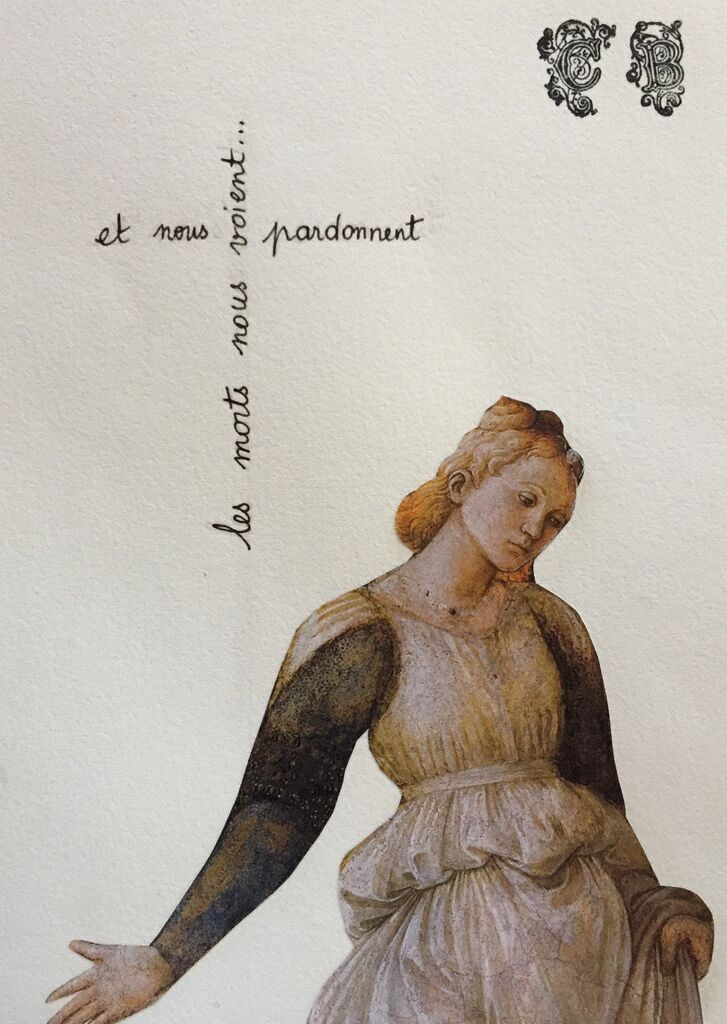 C B
les morts nous voient...
et nous pardonnent